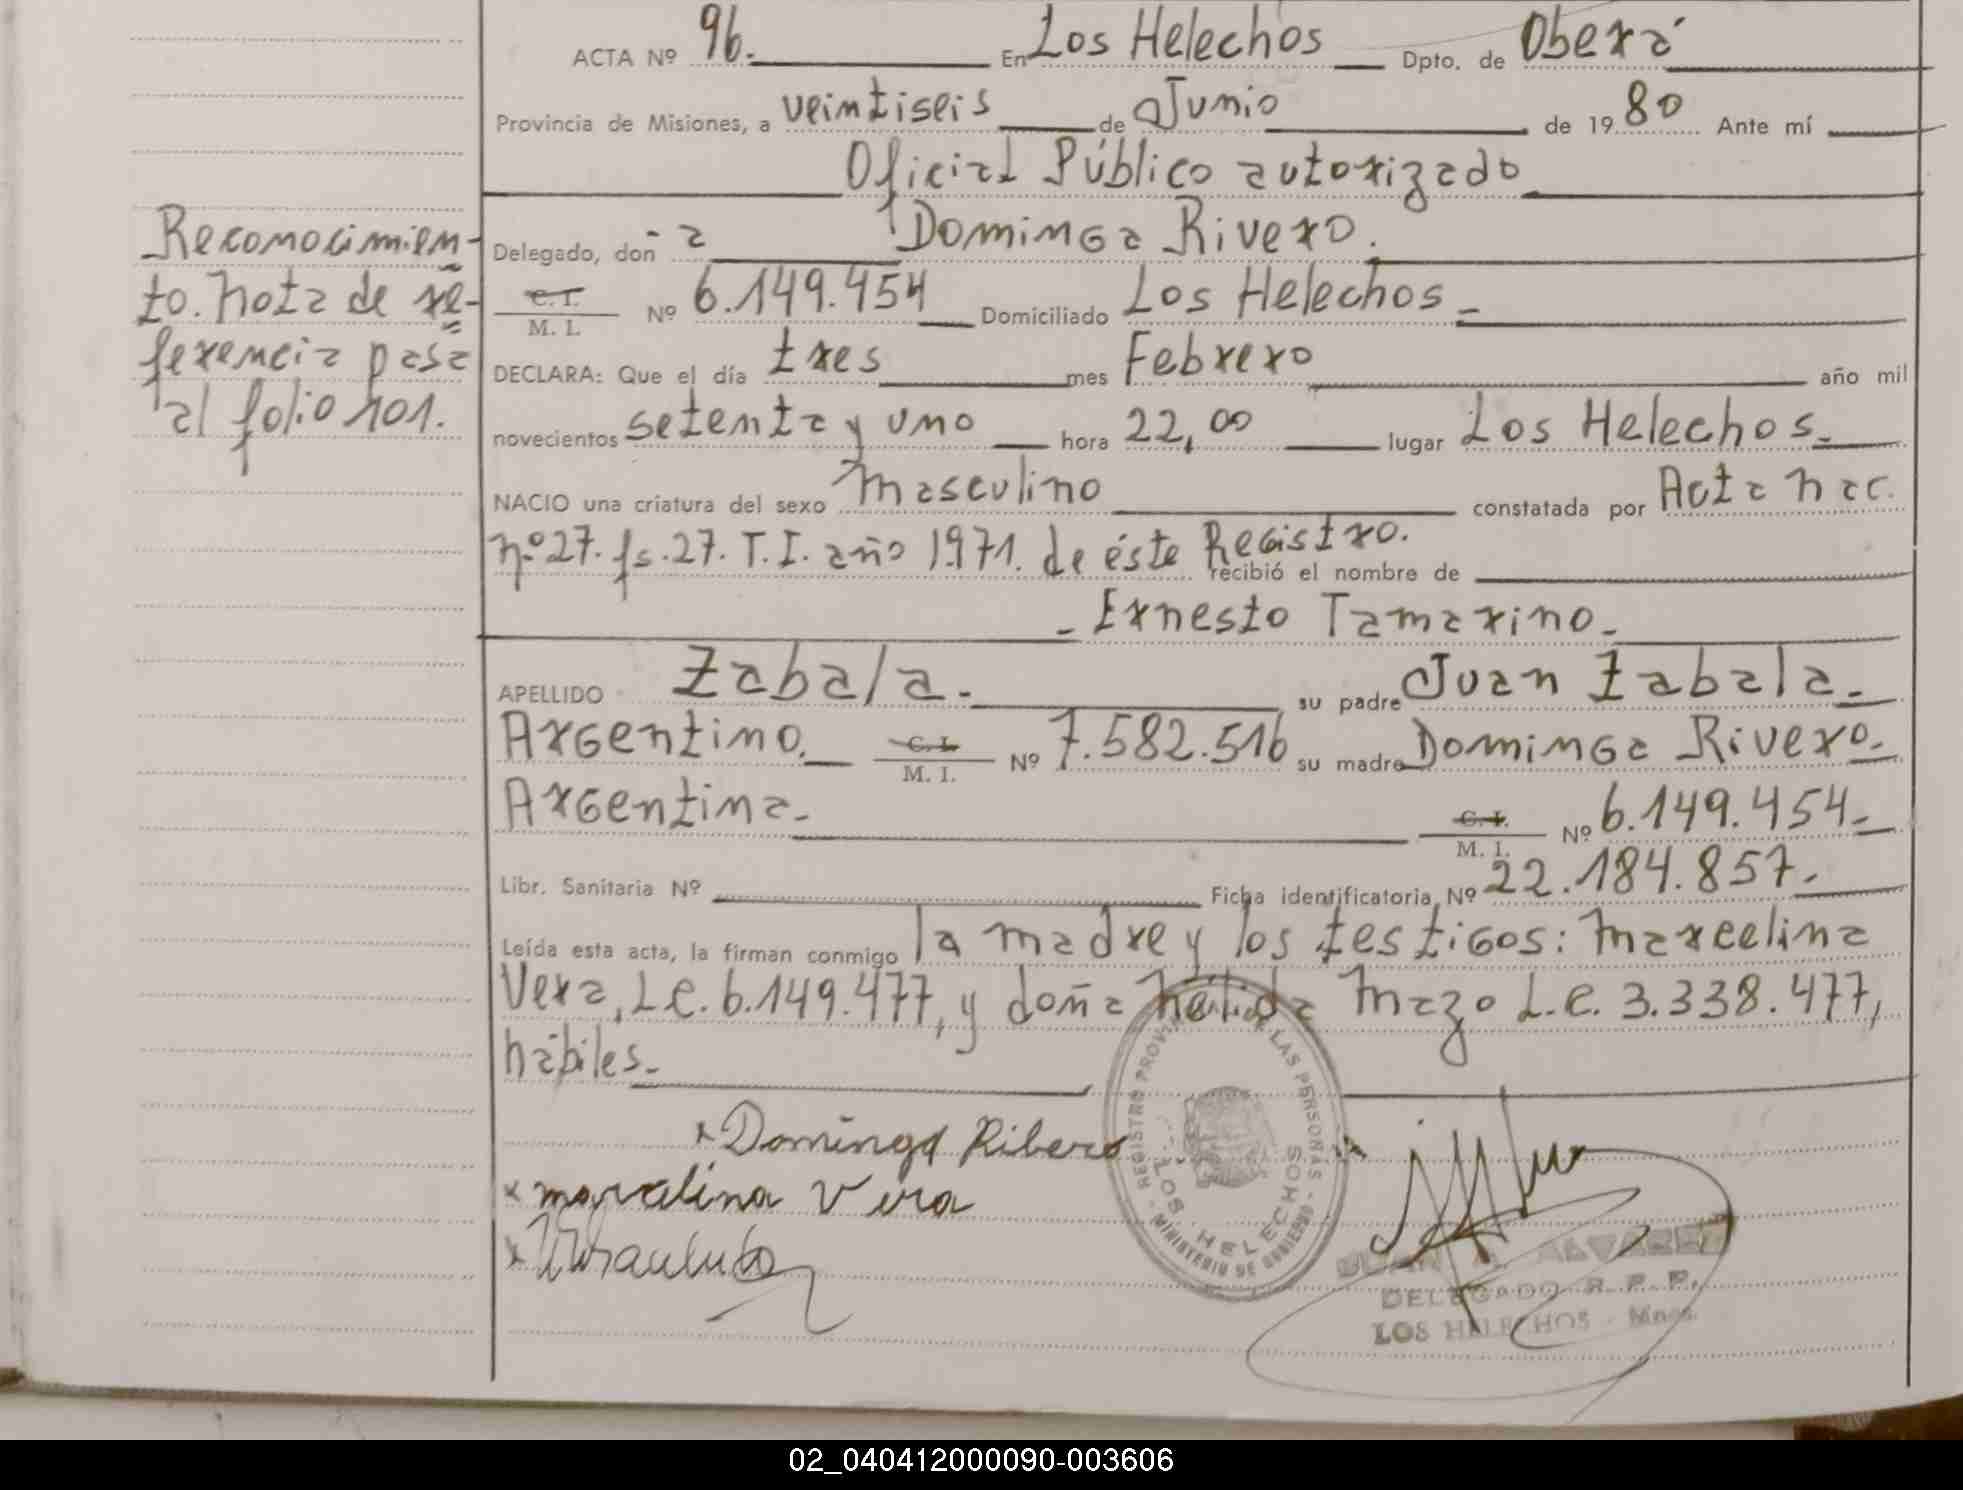 ACTA Nº 96. En Los Helechos Dpto. de Oberá
Provincia de Misiones, a veintiseis de Junio de 1980 Ante mí
Oficial Público autorizado
Delegado, doñ a Dominga Rivero.
C. I. M. I. Nº 6.149.454 Domiciliado Los Helechos
DECLARA: Que el día tres mes Febrero año mil
novecientos setenta y uno hora 22,00 lugar Los Helechos.
NACIO una criatura del sexo masculino constatada por Acta nac.
nº 27. fs. 27. T. I. año 1971. de éste Registro. recibió el nombre de
Ernesto Tamarino
APELLIDO Zabala. su padre Juan Zabala.
Argentino. C. I. M. I. Nº 7.582.516 su madre Dominga Rivero.
Argentina C. I. M. I. Nº 6.149.454
Libr. Sanitaria Nº Ficha identificatoria Nº 22.184.857.
Leída esta acta, la firman conmigo la madre y los testigos: marcelina
Vera, L.C. 6.149.477, y doña nélida Mazo L.C. 3.338.477,
hábiles
Reconocimien-
to. nota de re-
ferencia pasa
al folio 101.
x Dominga Ribero
x marcelina Vera
x
REGISTRO PROVINCIAL DE LAS PERSONAS - MINISTERIO DE GOBIERNO -
LOS HELECHOS
ALVAREZ
DELEGADO R. P. P.
LOS HELECHOS - Mnes.
02_040412000090-003606